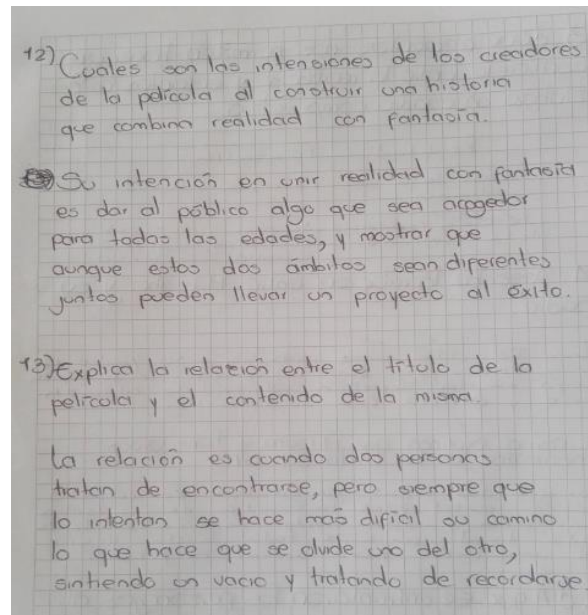 12) Cuales son las intensiones de los creadores
de la película al construir una historia
que combina realidad con fantasía.
Su intención en unir realidad con fantasía
es dar al público algo que sea acogedor
para todas las edades, y mostrar que
aunque estos dos ámbitos sean diferentes
juntos pueden llevar un proyecto al éxito.
13) Explica la relación entre el título de la
película y el contenido de la misma.
La relación es cuando dos personas
tratan de encontrarse, pero siempre que
lo intentan se hace más difícil su camino
lo que hace que se olvide uno del otro,
sintiendo un vacío y tratando de recordarse